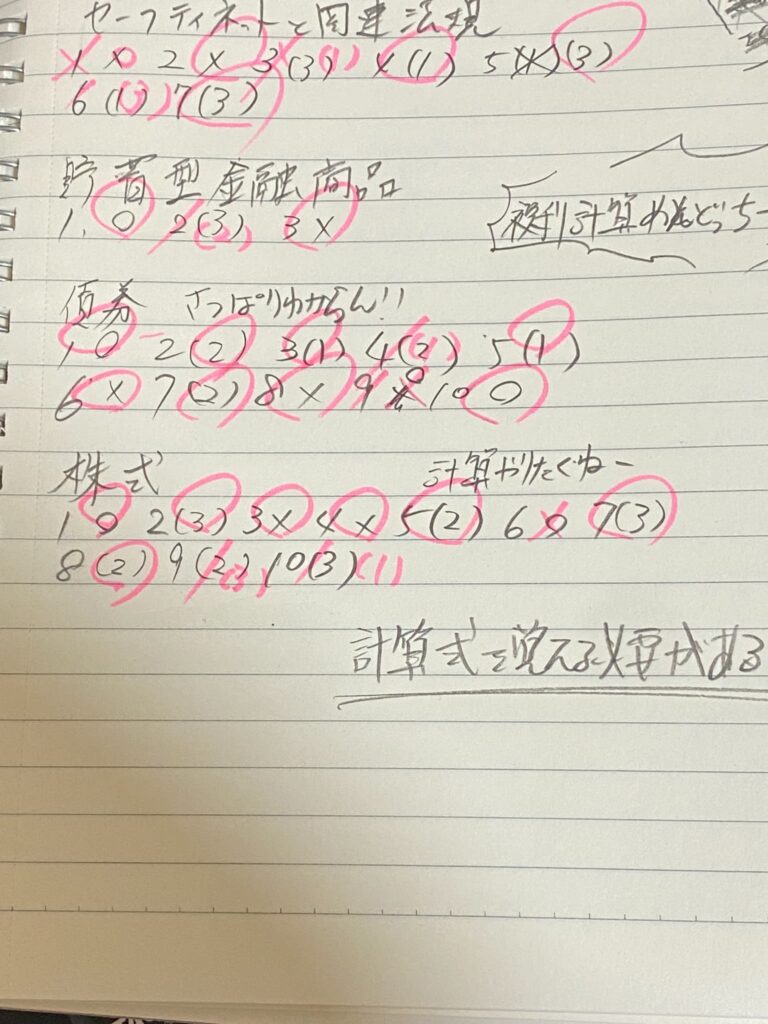 セーフティネットと関連法規
1 × ○ 2 × 3 (3) (1) 4 (1) 5 (×) (3)
6 (1) (3) 7 (3)
貯蓄型金融商品
1. ○ 2 (3) (2) 3 ×
複利計算めんどっちー
債券 さっぱりわからん!!
1 ○ 2 (2) 3 (1) 4 (2) 5 (1)
6 × 7 (2) 8 × 9 × ○ 10 ○
株式 計算やりたくねー
1 ○ 2 (3) 3 × 4 × 5 (2) 6 ○ 7 (3)
8 (2) 9 (2) (3) 10 (3) (1)
計算式を覚える必要がある